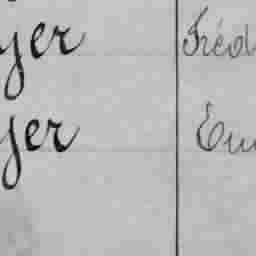 yer Fréd
yer Em